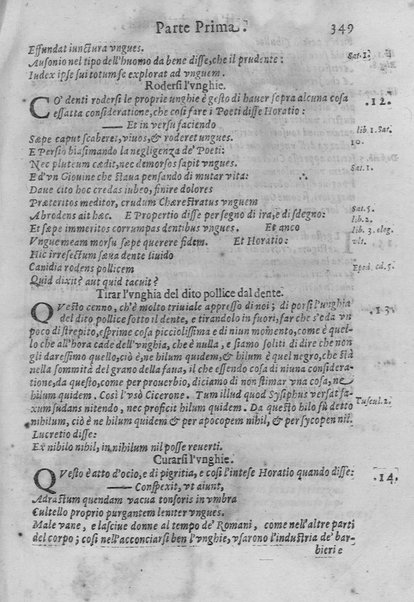 Parte Prima. 349
Effundat iunctura vngues.
Ausonio nel tipo dell'huomo da bene disse, che il prudente: Sat. 1.
Iudex ipse sui totumse explorat ad vnguem.
Rodersi l'vnghie.
CO' denti rodersi le proprie unghie è gesto di hauer sopra alcuna cosa .12.
essatta consideratione, che cosi fare i Poeti disse Horatio:
—— Et in versu faciendo
Sæpe caput scaberet, viuos, & roderet ungues. lib 1. Sat.
E Persio biasimando la negligenza de' Poeti: 10.
Nec pluteum cædit, nec demorsos sapit vngues.
Ed'vn Giouine che staua pensando di mutar vita: Sat. 1.
Daue cito hoc credas iubeo, finire dolores
Præteritos meditor, crudum Chærestratus vnguem
Abrodens ait hæc. E Propertio disse per segno di ira, e di sdegno: Sat. 5.
Et sæpe immeritos corrumpas dentibus vngues. Et anco lib. 3. eleg.
Vnguemeam morsu sæpe querere fidem. Et Horatio: vlt.
Hic irresectum sæua dente liuido
Canidia rodens pollicem Epod. od. 5.
Quid dixit? aut quid tacuit?
Tirar l'vnghia del dito pollice dal dente.
QVesto cenno, ch'è molto triuiale appresso di noi; di porsi l'vnghia .13.
del dito pollice sotto il dente, e tirandolo in fuori, far che s'eda vn
poco di strepito, esprime cosa picciolissima e di niun momento, come è quel-
lo che all'hora cade dell'vnghia, che è nulla, e siamo soliti di dire che non
gli daressimo quello, ciò è, ne hilum quidem, & hilum è quel negro, che stà
nella sommità del grano della faua, il che essendo cosa di niuna considera-
tione, da questo, come per prouerbio, diciamo di non stimar vna cosa, ne
hilum quidem. Così l'vsò Cicerone. Tum illud quod Sysiphus versat sa- Tuscul. 2.
xum sudans nitendo, nec proficit hilum quidem. Da questo hilo fù detto
nihilum, ciò è ne hilum quidem & per apocopem nihil, & per sycopen nil.
Lucretio disse:
Ex nibilo nihil, in nihilum nil posse reuerti.
Curarsi l'vnghie.
QVesto è atto d'ocio, e di pigritia, e così l'intese Horatio quando disse: .14.
—— Conspexit, vt aiunt,
Adrastum quendam vacua tonsoris in vmbra
Cultello proprio purgantem leniter vngues.
Male vane, e lasciue donne al tempo de' Romani, come nell'altre parti
del corpo; così nell'acconciarsi ben l'vnghie, vsarono l'industria de' bar-
bieri e